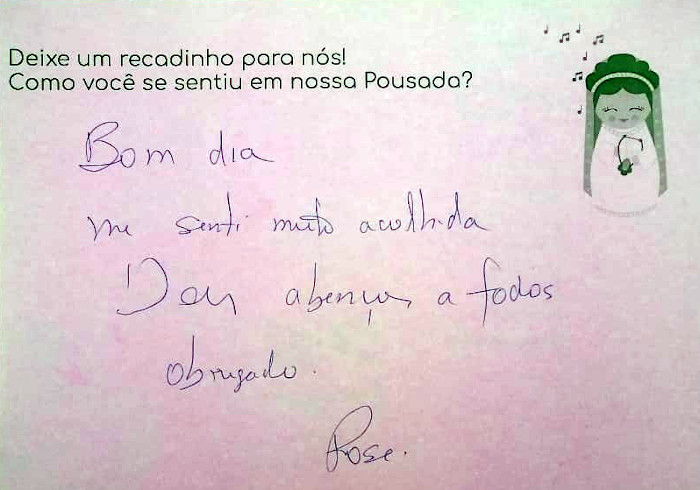 Deixe um recadinho para nós!
Como você se sentiu em nossa Pousada?
Bom dia
me senti muito acolhida
Deus abençoe a todos
obrigado.
Rose.